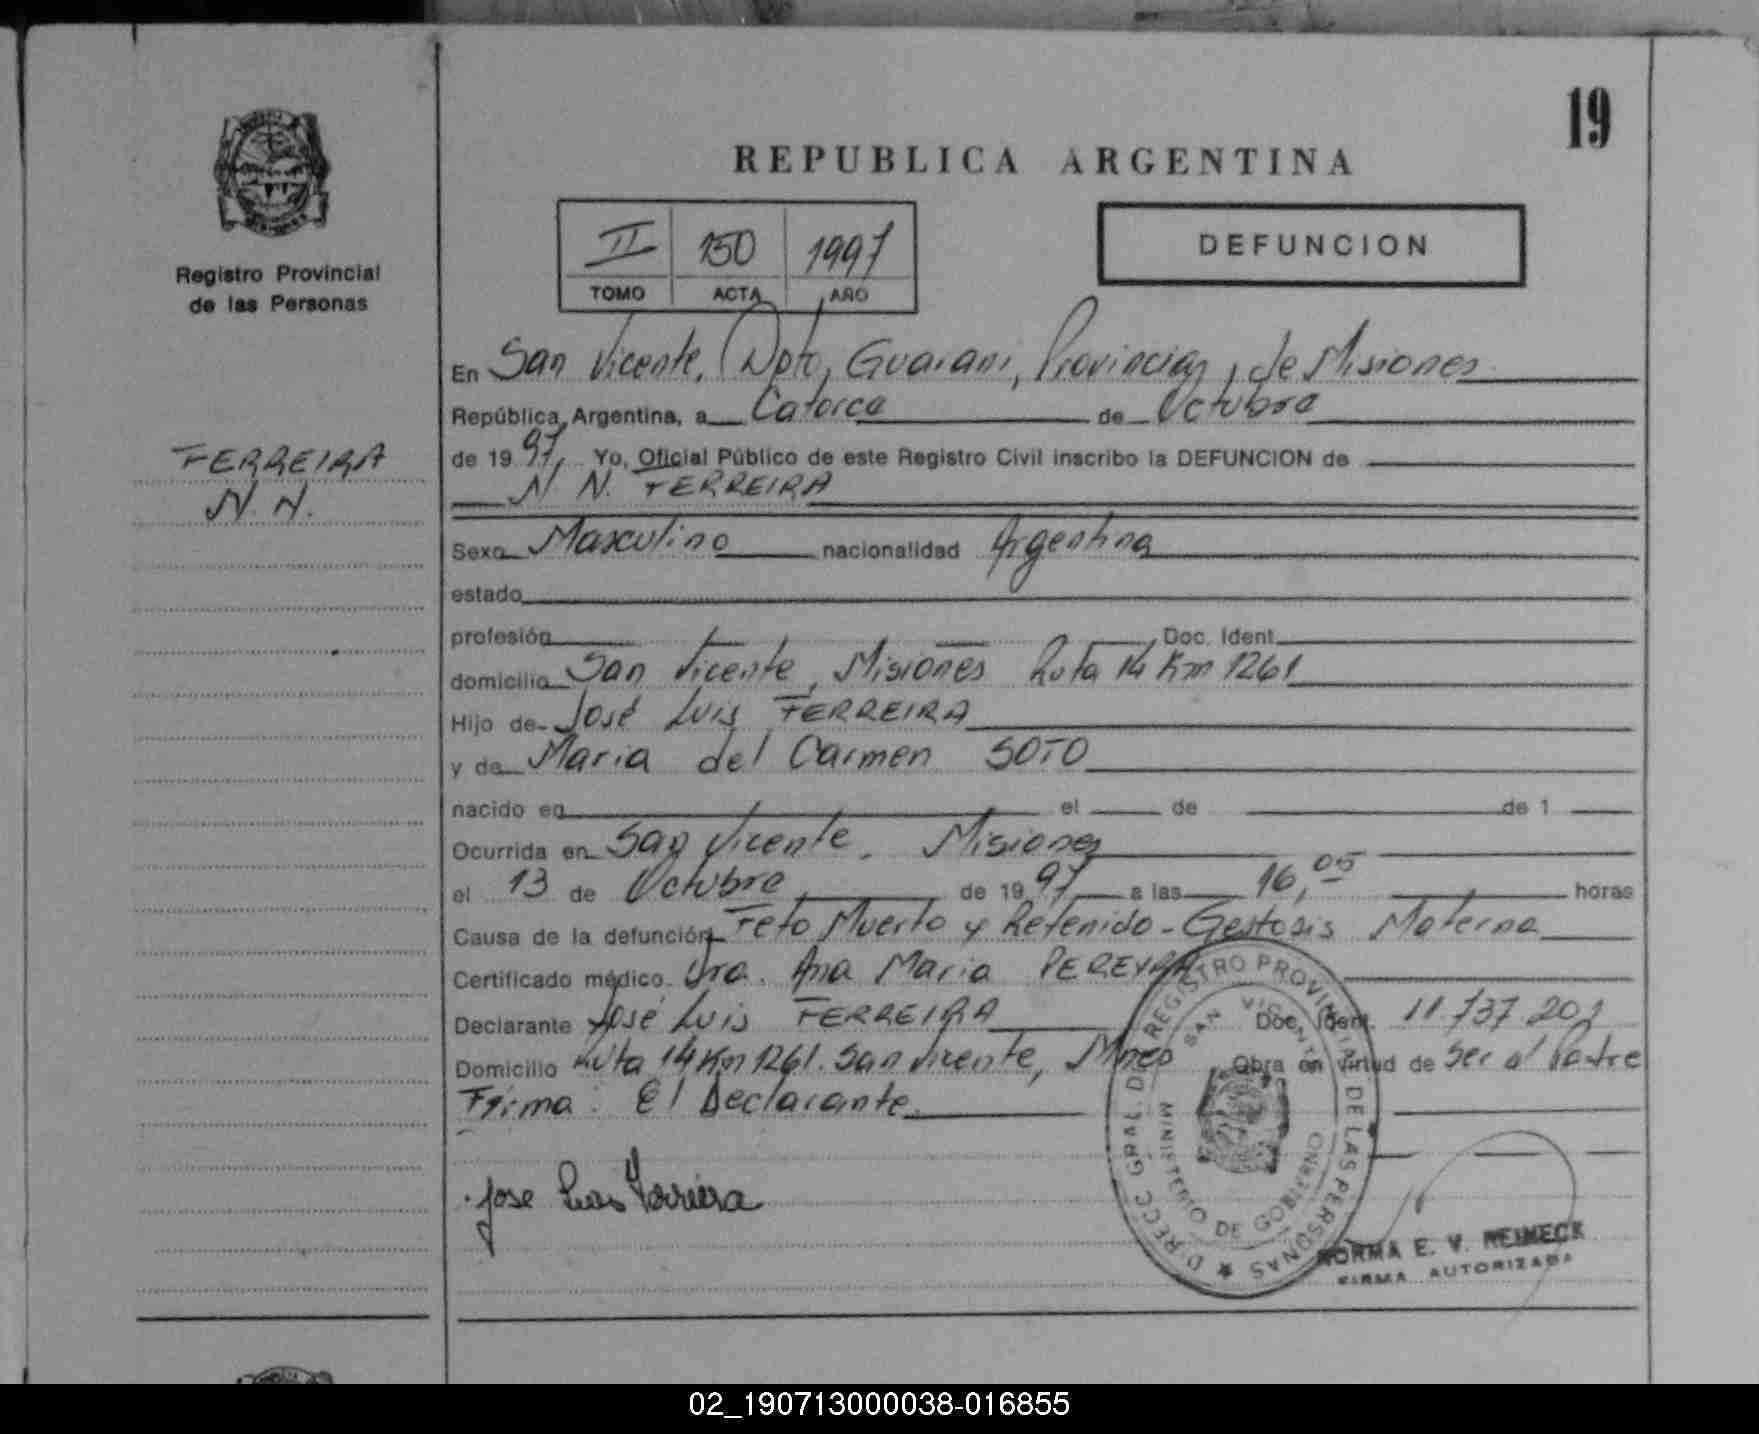 19
REPUBLICA ARGENTINA
Registro Provincial
de las Personas
II 150 1997
TOMO ACTA AÑO
DEFUNCION
FERREIRA
N. N.
En San Vicente, Dpto, Guarani, Provincia, de Misiones
República Argentina, a Catorce de Octubre
de 19 97, Yo, Oficial Público de este Registro Civil inscribo la DEFUNCION de
N N. FERREIRA
Sexo Masculino nacionalidad Argentina
estado
profesión Doc. Ident.
domicilio San Vicente, Misiones Ruta 14 Km 1261
Hijo de José Luis FERREIRA
y de Maria del Carmen SOTO
nacido en el de de 1
Ocurrida en San Vicente, Misiones
el 13 de Octubre de 19 97 a las 16,05 horas
Causa de la defunción Feto Muerto y Retenido - Gestosis Materna
Certificado médico Dra. Ana Maria PEREYRA
Declarante José Luis FERREIRA Doc. Ident. 11.737.201
Domicilio Ruta 14 Km 1261. San Vicente, Mnes Obra en virtud de Ser el Padre
Firma: El Declarante
Jose Luis Ferreira
DIRECC. GRAL. DEL REGISTRO PROVINCIAL DE LAS PERSONAS
SAN VICENTE
MINISTERIO DE GOBIERNO
NORMA E. V. REINECK
FIRMA AUTORIZADA
02_190713000038-016855